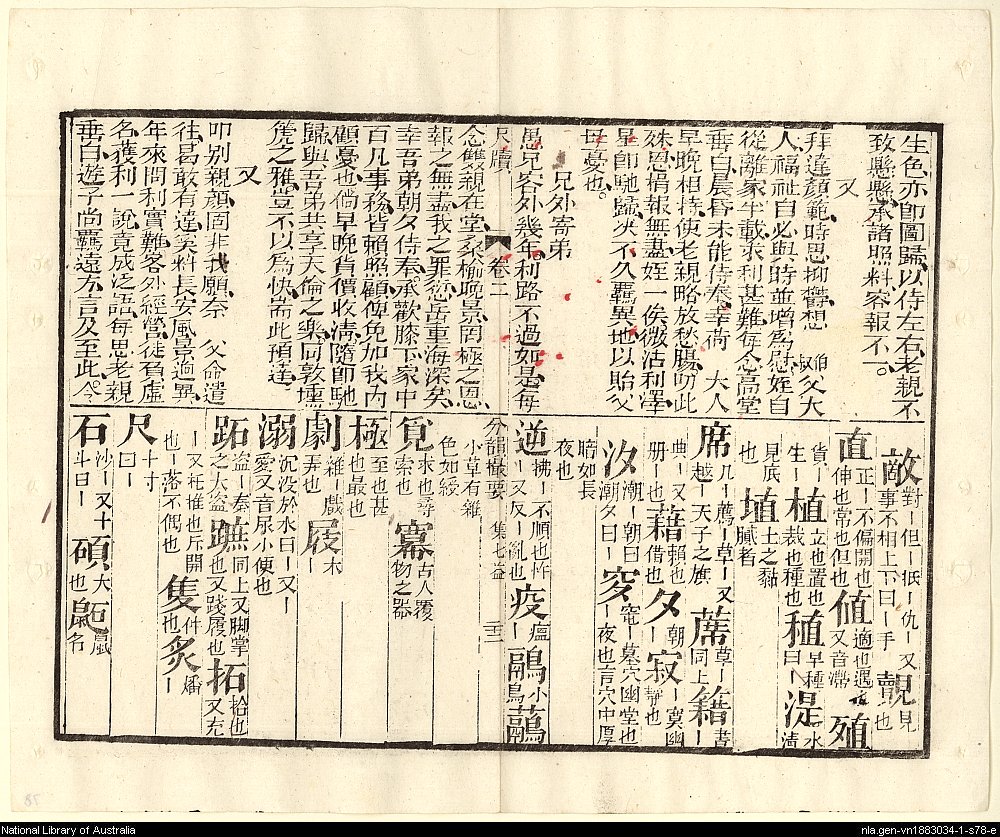 生色亦即圖歸以侍左右老親不
致懸懸承諸照料容報不一。
又
拜違顏範時思抑鬱想 伯叔父大
人福祉自必與時並增為慰姪自
從離家半載求利甚難每念高堂
垂白晨昏未能侍奉幸荷 大人
早晚相持使老親略放愁腸叨此
殊恩愧報無盡姪一俟微沾利澤
星即馳歸决不久羈異地以貽父
母憂也。
兄外寄弟
愚兄客外幾年利路不過如是每
尺牘 卷二
念雙親在堂桑榆晚景罔極之恩
報之無盡我之罪愆岳重海深矣
幸吾弟朝夕侍奉承歡膝下家中
百凡事務皆賴照顧俾免加我內
顧憂也倘早晚貨價收清隨即馳
歸與吾弟共享天倫之樂同敦壎
篪之雅豈不以為快耑此預達
又
叩別親顏固非我願奈 父命遣
往曷敢有違奚料長安風景適異
年來問利實難客外經營徒負虛
名獲利一說竟成泛語每思老親
垂白遊子尚羈遠方言及至此令
敵 對一但一抵一仇一又事不相上下曰一手 覿 見也
直 正一不偏開也伸也常也但也 值 適也遇也又音滯 殖
貨一生一 植 立也置也栽也種也 稙 早種曰一 湜 水清
見底 埴 土之黏膩者
席 几一薦一草一又越一天子之旗 蓆 草一同上 籍 書一
典一又冊一也 藉 賴也借也 夕 朝一 寂 一寞幽靜也
汐 潮一朝曰潮夕曰一 穸 窀一墓穴幽堂也一夜也言穴中厚
暗如長夜也
逆 拂一不順也忤一又反一亂也 疫 瘟一 鷊 小鳥 虉
分韻撮要 集七益 三二
小草有雜色如綬
覓 求也尋索也 冪 古人覆物之器
極 至也甚也最也
劇 雜一戲弄也 屐 木一
溺 沉没於水曰一又一愛又音尿小便也
跖 盜一秦之大盜 蹠 同上又脚掌也又踐履也 拓 拾也又充
一又托推也斥開也一落不偶也 隻 一件也 炙 燔一
尺 十寸曰一
石 沙一又十斗曰一 碩 大也 鼫 鼠名
National Library of Australia
nla.gen-vn1883034-1-s78-e